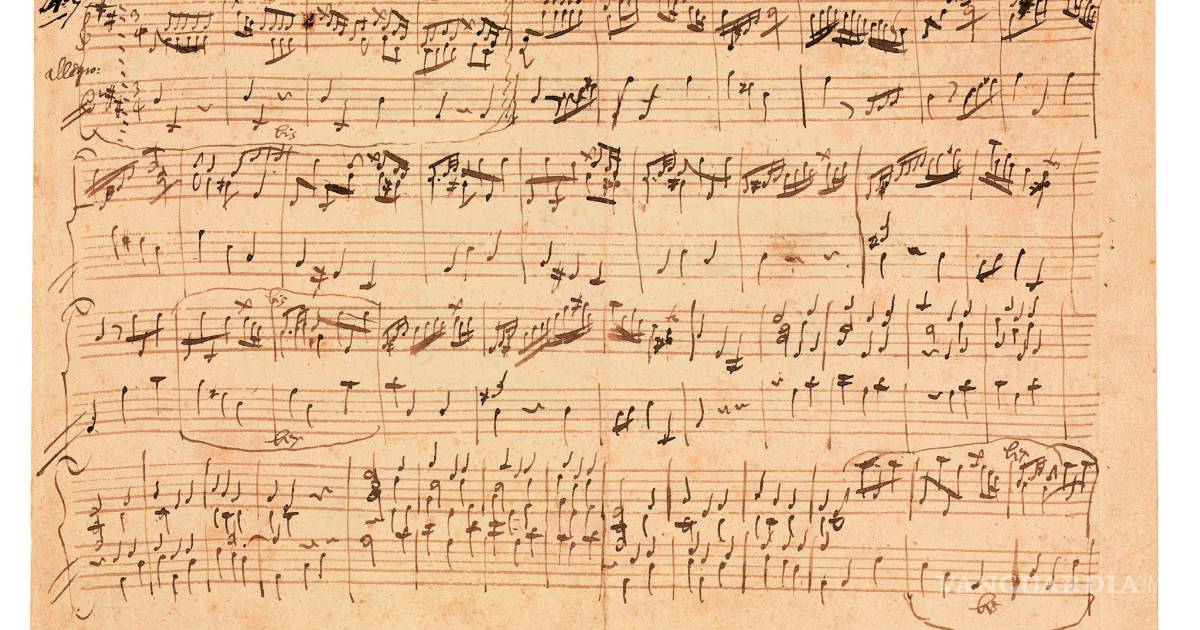 allegro:
bis
bis
bis
bis
bis
VANGUARDIA | M